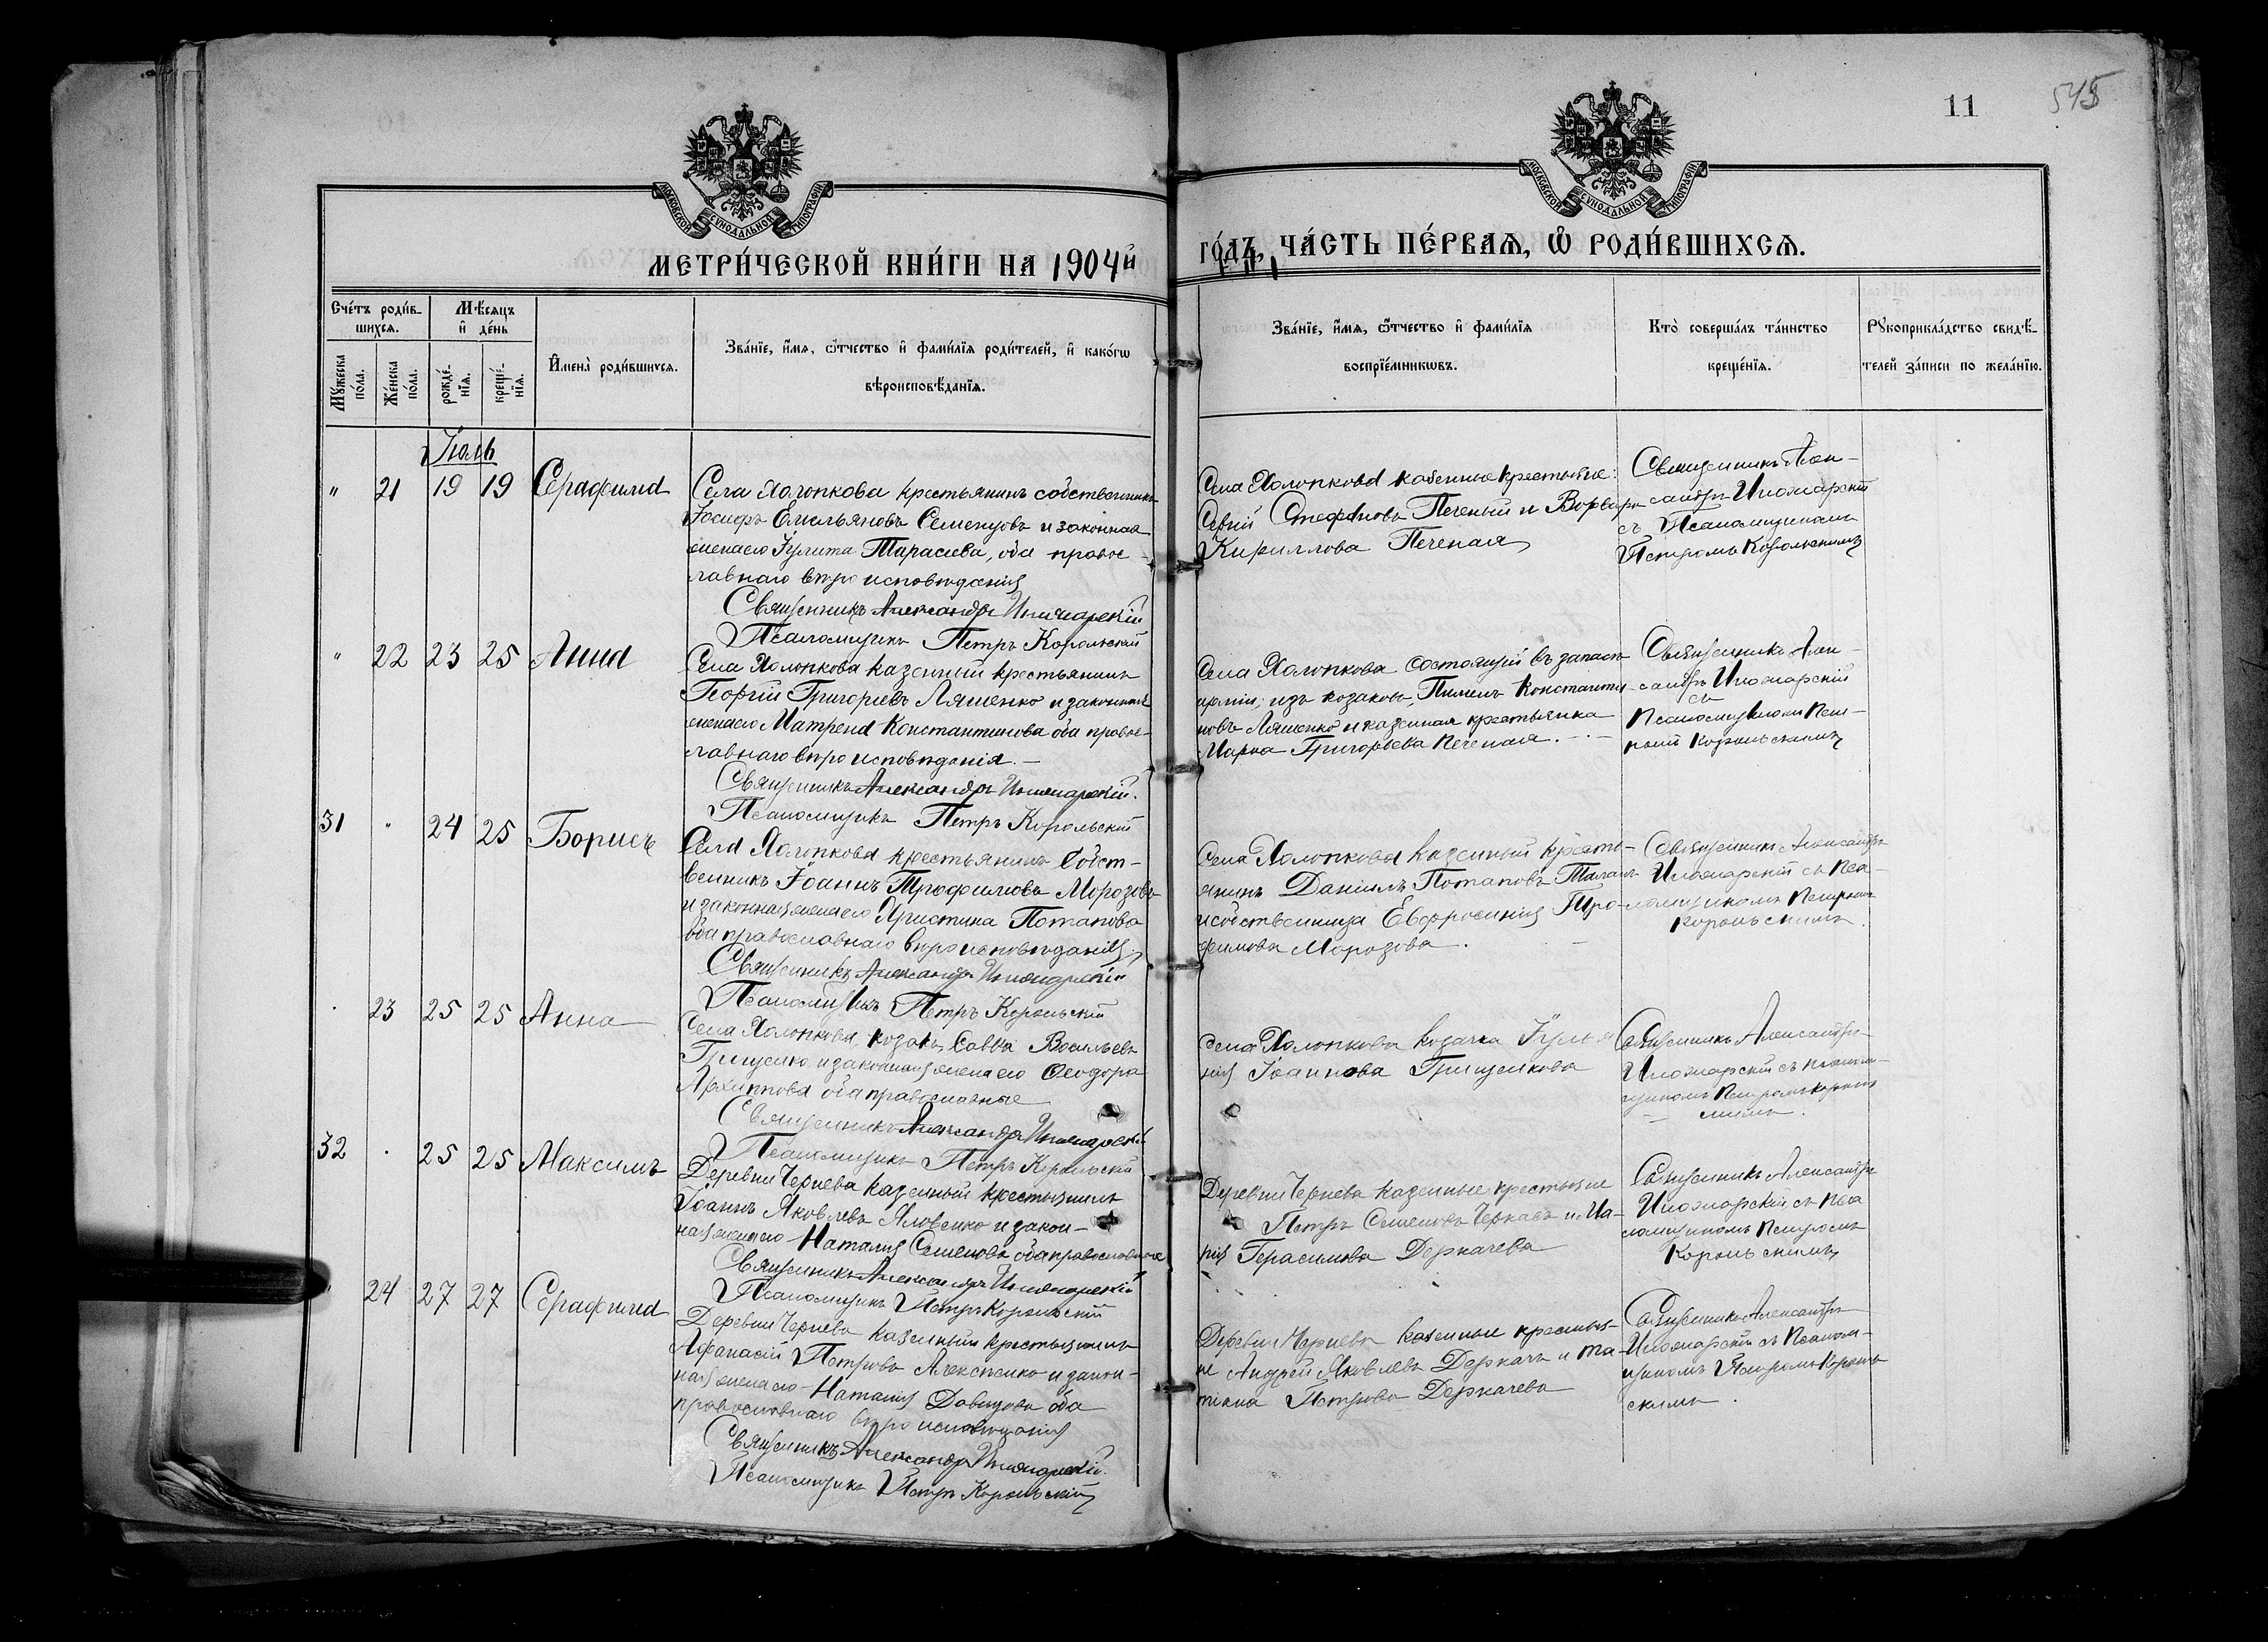 11
545
МОСКОВСКОЙ СѴНОДАЛЬНОЙ ТИПОГРАФІИ
МОСКОВСКОЙ СѴНОДАЛЬНОЙ ТИПОГРАФІИ
МЕТРИ́ЧЕСКОЙ КНИ́ГИ НА 1904й
ГО́ДЪ, ЧА́СТЬ ПЕ́РВАѦ, Ѽ РОДИ́ВШИХСѦ.
Сче́тъ роди́в-
шихсѧ.
Мѣ́сѧцъ
и҆ де́нь
Мꙋ́жеска по́ла.
Же́нска по́ла.
рожде́-нїѧ.
креще́-нїѧ.
И҆мена̀ роди́вшихсѧ.
Зва́нїе, и҆́мѧ, ѻ҆́тчество и҆ фами́лїѧ роди́телей, и҆ како́гѡ
вѣроисповѣ́данїѧ.
Зва́нїе, и҆́мѧ, ѻ҆́тчество и҆ фами́лїѧ
воспрїе́мникѡвъ.
Кто̀ соверша́лъ та́инство
креще́нїѧ.
Рꙋкоприкла́дство свидѣ́-
телей за́писи по жела́нїю.
Іюль
" 21 19 19 Серафима
Села Холопкова крестьянинъ собственникъ
Іосифъ Емельяновъ Семенцовъ и законная
жена его Іулита Тарасиева, оба правос-
лавнаго вѣроисповѣданія
Священникъ Александръ
Псаломщикъ Петръ Корольский
Села Холопкова казенные крестьяне:
Сергій Стефановъ Печеный и Варвара
Кириллова Печеная
Священникъ Алек-
сандръ
съ Псаломщикомъ
Петромъ Корольскимъ
" 22 23 25 Анна
Села Холопкова казенный крестьянинъ
Георгій Григориевъ Ляшенко и законная
жена его Матрена Константинова оба правос-
лавнаго вѣроисповѣданія. —
Священникъ Александръ
Псаломщикъ Петръ Корольский
Села Холопкова состоящій въ запасѣ
арміи, изъ козаковъ, Пименъ Константи-
новъ Ляшенко и казенная крестьянка
Марѳа Григорьева Печеная. —
Священникъ Алек-
сандръ
съ
Псаломщикомъ Пет-
ромъ Корольскимъ
31 " 24 25 Борисъ
Села Холопкова крестьянинъ собст-
венникъ Іоаннъ Трофимовъ Морозовъ
и законная жена его Христина Потапова
оба православнаго вѣроисповѣданія
Священникъ Александръ
Псаломщикъ Петръ Корольский
Села Холопкова казенный кресть-
янинъ Даніилъ Потаповъ
и собственница Евфросинія Тро-
фимова Морозова.
Священникъ Александръ
съ Пса-
ломщикомъ Петромъ
Корольскимъ
23 25 25 Анна
Села Холопкова козакъ Савва Васильевъ
Грищенко и законная жена его Ѳеодора
Архиппова оба православные
Священникъ Александръ
Псаломщикъ Петръ Корольский
Села Холопкова козачка Іуліа-
нія Іоаннова Грищенкова
Священникъ Александръ
съ Псалом-
щикомъ Петромъ Король-
скимъ.
32 25 25 Максимъ
Деревни Чернева казенный крестьянинъ
Іоаннъ Яковлевъ Яловенко и закон-
ная жена его Наталія Семенова оба православные
Священникъ Александръ
Псаломщикъ Петръ Корольский
Деревни Чернева казенные крестьяне
Петръ Семеновъ Черкасъ и Ма-
рія Герасимова Деркачева
Священникъ Александръ
съ Пса
ломщикомъ Петромъ
Корольскимъ
" 24 27 27 Серафима
Деревни Чернева казенный крестьянинъ
Афанасій Петровъ Алексеенко и закон-
ная жена его Наталія Давидова оба
православнаго вѣроисповѣданія
Священникъ Александръ
Псаломщикъ Петръ Корольскій
Деревни Чернева казенные крестья-
не Андрей Яковлевъ Деркачъ и Та-
тіана Петрова Деркачева
Священникъ Александръ
съ Псалом-
щикомъ Петромъ Король-
скимъ.